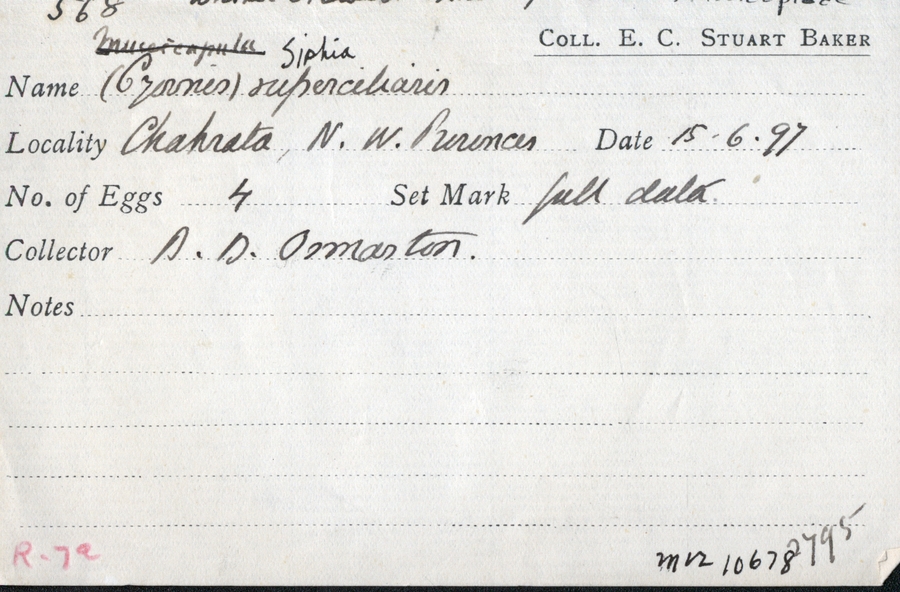 568
Muscicapula Siphia
COLL. E. C. STUART BAKER
Name (Cyornis) superciliaris
Locality Chakrata, N. W. Provinces Date 15-6-97
No. of Eggs 4 Set Mark full data.
Collector B. B. Osmaston.
Notes
R-7a
MVZ 10678
2795